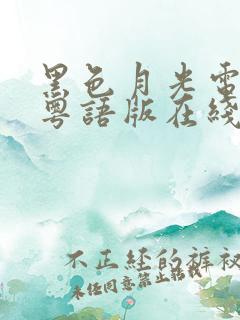 黑色月光電
粵語版在綫
不正経的褲衩
未经同意禁止转载